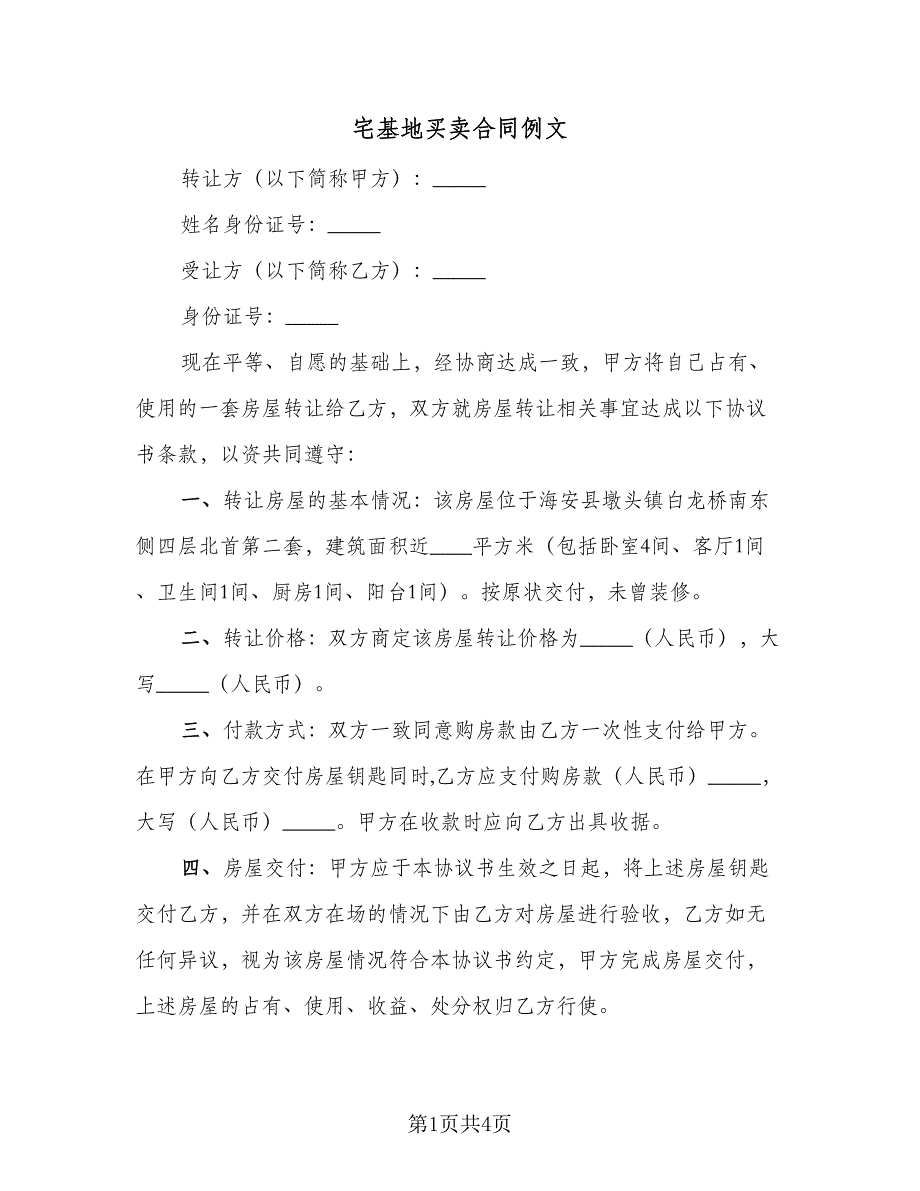 宅基地买卖合同例文
转让方（以下简称甲方）：_____
姓名身份证号：_____
受让方（以下简称乙方）：_____
身份证号：_____
现在平等、自愿的基础上，经协商达成一致，甲方将自己占有、
使用的一套房屋转让给乙方，双方就房屋转让相关事宜达成以下协议
书条款，以资共同遵守：
一、转让房屋的基本情况：该房屋位于海安县墩头镇白龙桥南东
侧四层北首第二套，建筑面积近____平方米（包括卧室4间、客厅1间
、卫生间1间、厨房1间、阳台1间）。按原状交付，未曾装修。
二、转让价格：双方商定该房屋转让价格为_____（人民币），大
写_____（人民币）。
三、付款方式：双方一致同意购房款由乙方一次性支付给甲方。
在甲方向乙方交付房屋钥匙同时,乙方应支付购房款（人民币）_____，
大写（人民币）_____。甲方在收款时应向乙方出具收据。
四、房屋交付：甲方应于本协议书生效之日起，将上述房屋钥匙
交付乙方，并在双方在场的情况下由乙方对房屋进行验收，乙方如无
任何异议，视为该房屋情况符合本协议书约定，甲方完成房屋交付，
上述房屋的占有、使用、收益、处分权归乙方行使。
第1页共4页